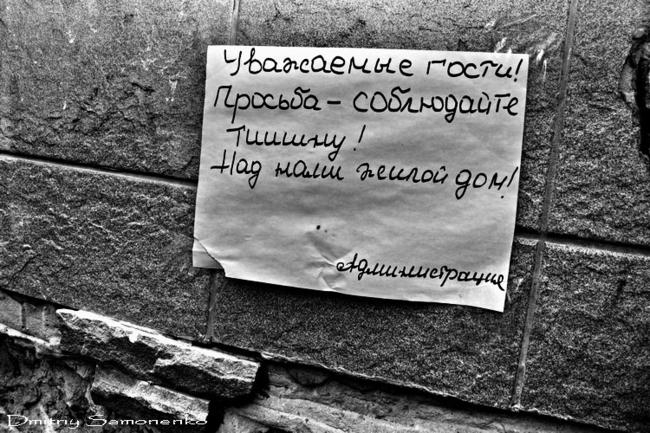 Уважаемые гости!
Просьба - соблюдайте
тишину!
Над нами жилой дом!
Администрация
Dmitriy Samonenko